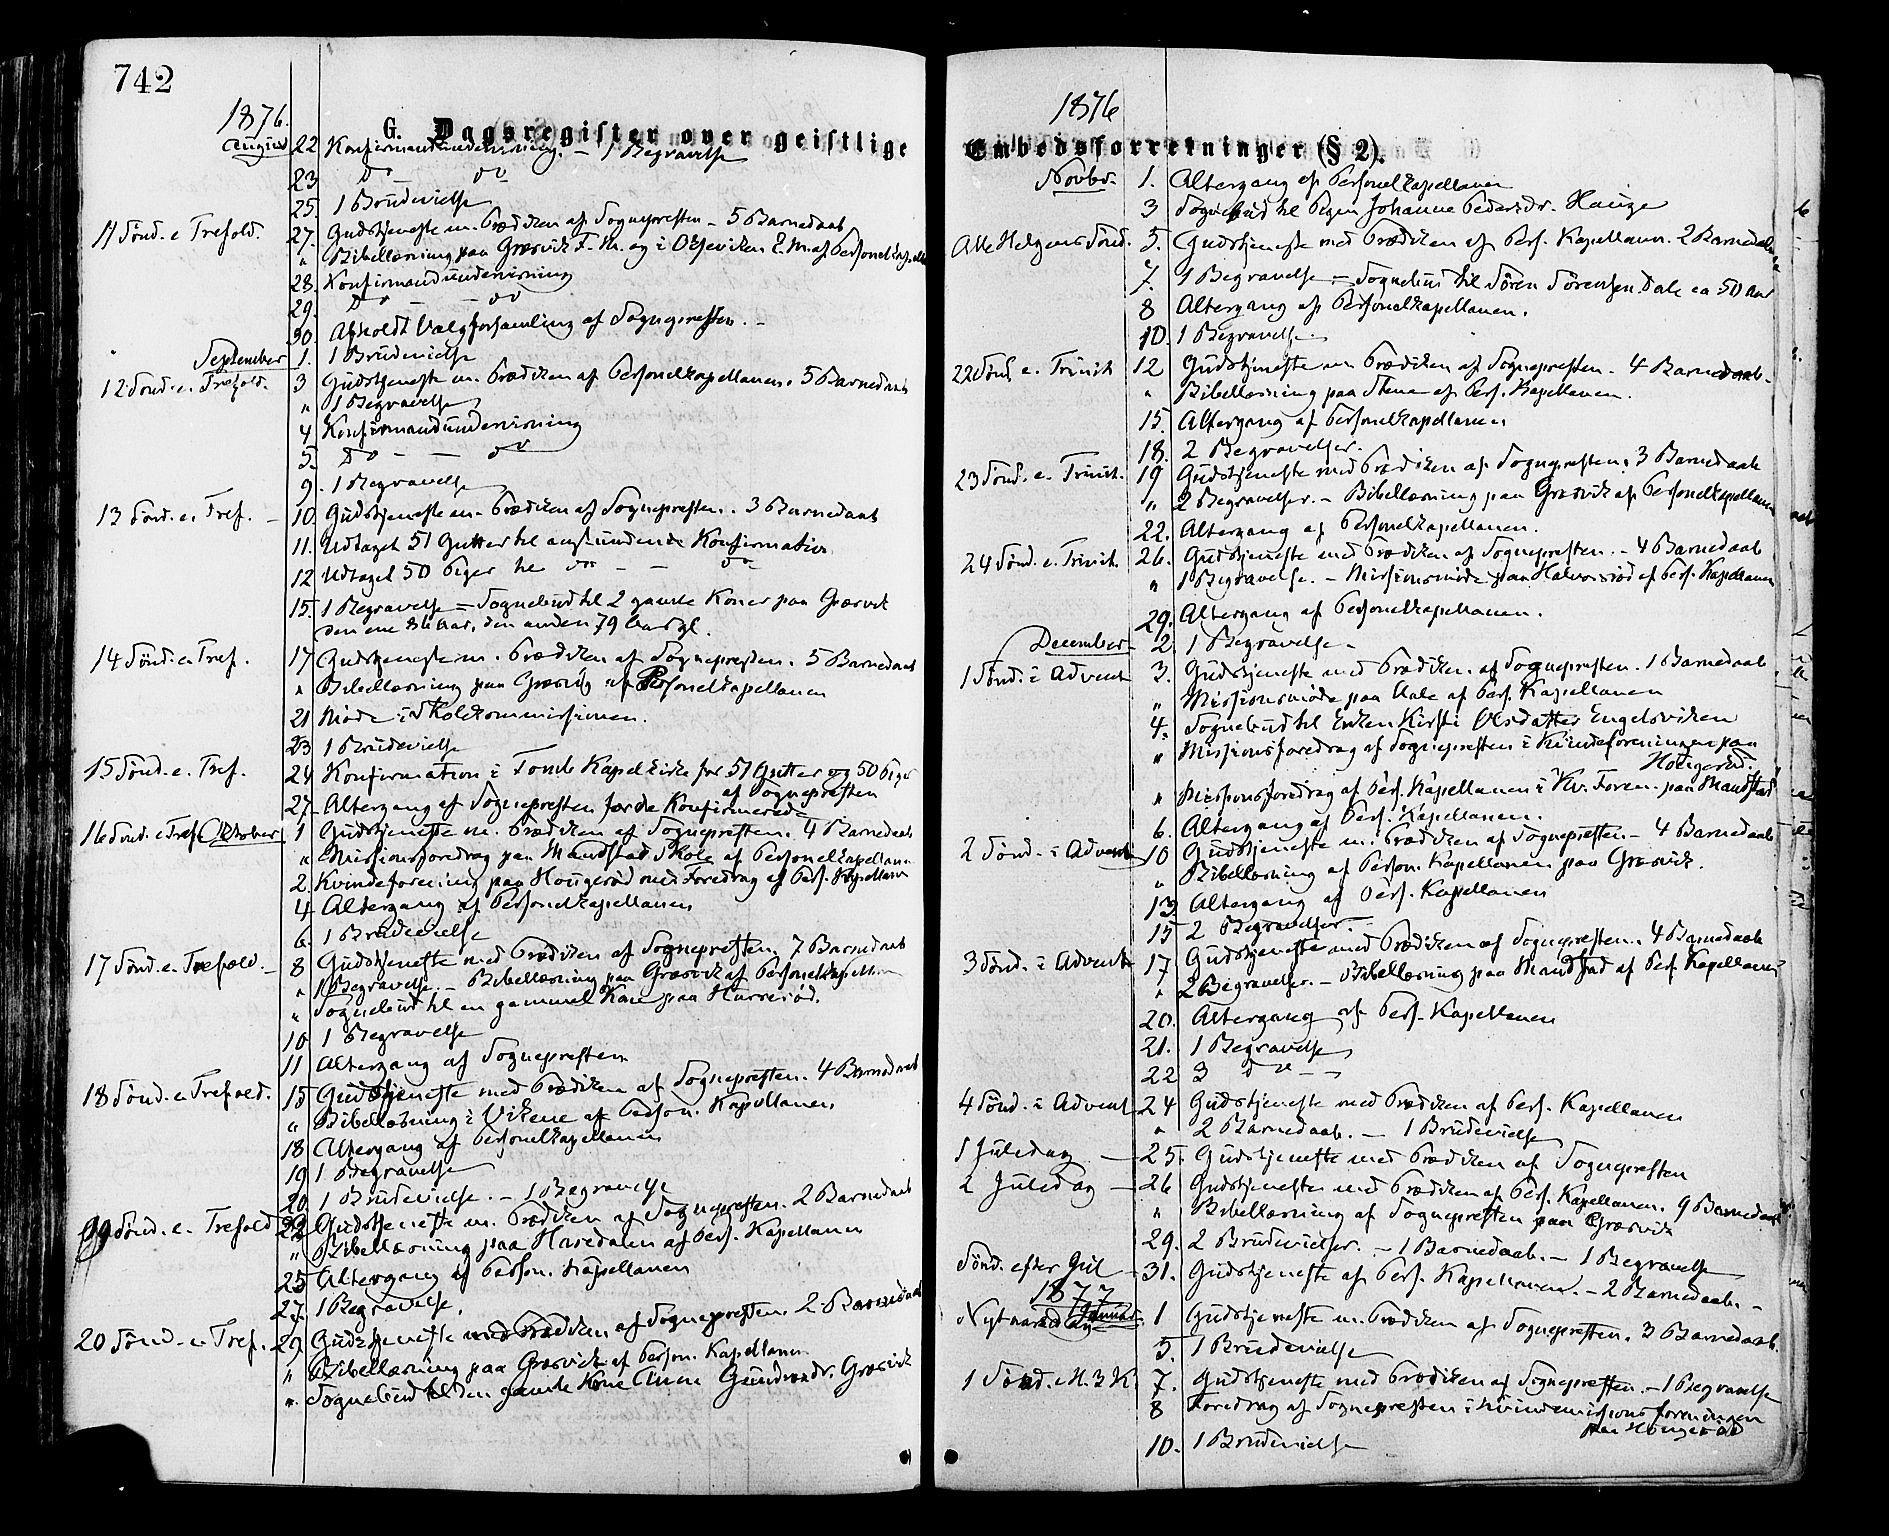 742
1876.
G. Dagsregister over geistlige
August 22 Konfirmandundervisning. – 1 Begravelse
23 Do – do
25. 1 Brudevielse
11 Sønd. e. Trefold. 27. Gudstjeneste m. Prædiken af Sognepresten – 5 Barnedaab
" Bibellæsning paa Græsvik F.M. og i E.M. af Personelkapell
28. Konfirmandundervisning
29. Do – do
30. Afholdt Valgforsamling af Sognepresten. –
September 1. 1 Brudevielse
12 Sønd. e. Trefold. 3 Gudstjeneste m. Prædiken af Personelkapellanen. 5 Barnedaab
" 1 Begravelse
4 Konfirmandundervisning
5. Do – – do
9. 1 Begravelse
13 Sønd. e. Tref. – 10. Gudstjeneste m. Prædiken af Sognepresten. 3 Barnedaab
11. Udtaget 51 Gutter til anstundende Konfirmation
12 Udtaget 50 Piger til do – – do
15. 1 Begravelse – Sognebud til 2 gamle Koner paa Græsvik
den ene Aar, den anden 79 Aar gl.
14 Sønd. e. Tref. 17 Gudstjeneste m. Prædiken af Sognepresten. 5 Barnedaab
" Bibellæsning paa Græsvig af Personelkapellanen
21 Møde i Skolekommissionen.
23 1 Brudevielse
15 Sønd. e. Tref. 24 Konfirmation i Kapelkirke for 51 Gutter og 50 Piger
af Sognepresten
27. Altergang af Sognepresten for de Konfirmerede
16 Sønd. e. Tref. Oktober 1 Gudstjeneste m. Prædiken af Sognepresten. 4 Barnedaab
" Missionsforedrag paa Mandstad Skole af Personelkapellanen
2. Kvindeforening paa Hougerød med Foredrag af Pers. Kapellanen
4 Altergang af Personelkapellanen
6. 1 Brudevielse
17 Sønd. e. Trefold. – 8 Gudstjeneste med Prædiken af Sognepresten. 7 Barnedaab
" 1 Begravelse. – Bibellæsning paa Græsvik af Personelkapellanen
" Sognebud til en gammel Kone paa
10 1 Begravelse
11 Altergang af Sognepresten
18 Sønd. e. Trefold. 15 Gudstjeneste med Prædiken af Sognepresten. 4 Barnedaab
" Bibellæsning i Vikene af Person. Kapellanen.
18 Altergang af Personelkapellanen
19 1 Begravelse
20. 1 Brudevielse. – 1 Begravelse
19 Sønd. e. Trefold 22 Gudstjeneste m. Prædiken af Sognepresten. 2 Barnedaab
" Bibellæsning paa af Pers. Kapellanen
25 Altergang af Person. Kapellanen
27. 1 Begravelse.
20 Sønd. e. Tref. 29. Gudstjeneste med Prædiken af Sognepresten. 2 Barnedaab
" Bibellæsning paa Græsvik af Person. Kapellanen
" Sognebud til den gamle Kone Græsvik
1876
Embedsforretninger (§ 2).
Novbr. 1. Altergang af Personelkapellanen
3 Sognebud til Pigen Johanne Pedersdr. Hauge
Alle Helgens Sønd. 5. Gudstjeneste med Prædiken af Pers. Kapellanen. 2 Barnedaab
7. 1 Begravelse – Sognebud til Sören Sörensen Dale ca 50 Aar
8 Altergang af Personelkapellanen.
10. 1 Begravelse
22 Sønd. e. Trinit. 12 Gudstjeneste m Prædiken af Sognepresten. 4 Barnedaab.
" Bibellæsning paa af Pers. Kapellanen.
15. Altergang af Personelkapellanen
18. 2 Begravelser.
23 Sønd. e. Trinit. 19 Gudstjeneste med Prædiken af Sognepresten. 3 Barnedaab
" 2 Begravelser. – Bibellæsning paa Græsvik af Personelkapellanen
22. Altergang af Personelkapellanen.
24 Sønd. e. Trinit. 26. Gudstjeneste med Prædiken af Sognepresten. – 4 Barnedaab
" 1 Begravelse. – Missionsmøde paa Halvorsrød af Pers. Kapellanen
29. Altergang af Personelkapellanen.
December 2. 1 Begravelse –
1 Sønd. i Advent 3. Gudstjeneste med Prædiken af Sognepresten. 1 Barnedaab
" Missionsmøde paa Aale af Pers. Kapellanen
4. Sognebud til Enken Kirsti Olsdatter Engelsviken
" Missionsforedrag af Sognepresten i Kvindeforeningen paa
Hougerød.
" Missionsforedrag af Pers. Kapellanen i Kv. Foren. paa Mandstad
6. Altergang af Pers. Kapellanen.
2 Sønd. i Advent 10 Gudstjeneste m. Prædiken af Sognepresten – 4 Barnedaab
" Bibellæsning af Person. Kapellanen paa Græsvik.
13 Altergang af Pers. Kapellanen
15 2 Begravelser.
3 Sønd. i Advent 17 Gudstjeneste med Prædiken af Sognepresten. 4 Barnedaab
" 2 Begravelser. – Bibellæsning paa Mandstad af Pers. Kapellanen
20. Altergang af Pers. Kapellanen
21. 1 Begravelse
22 3 do – –
4 Sønd. i Advent 24 Gudstjeneste med Prædiken af Pers. Kapellanen
" 2 Barnedaab. – 1 Brudevielse
1 Juledag – 25. Gudstjeneste med Prædiken af Sognepresten
2 Juledag – 26 Gudstjeneste med Prædiken af Pers. Kapellanen. 9 Barnedaab
" Bibellæsning af Sognepresten paa Græsvik
29. 2 Brudevielser. – 1 Barnedaab. – 1 Begravelse
Sønd. efter Jul 31. Gudstjeneste af Pers. Kapellanen. – 2 Barnedaab. –
1877
Nytaarsdag Januar 1 Gudstjeneste m. Prædiken af Sognepresten. 3 Barnedaab.
5. 1 Brudevielse
1 Sønd. e. H. 3 K. 7. Gudstjeneste med Prædiken af Sognepresten. – 1 Begravelse
8 Foredrag af Sognepresten i Kvindemissionsforeningen
paa Hougerød
10. 1 Brudevielse